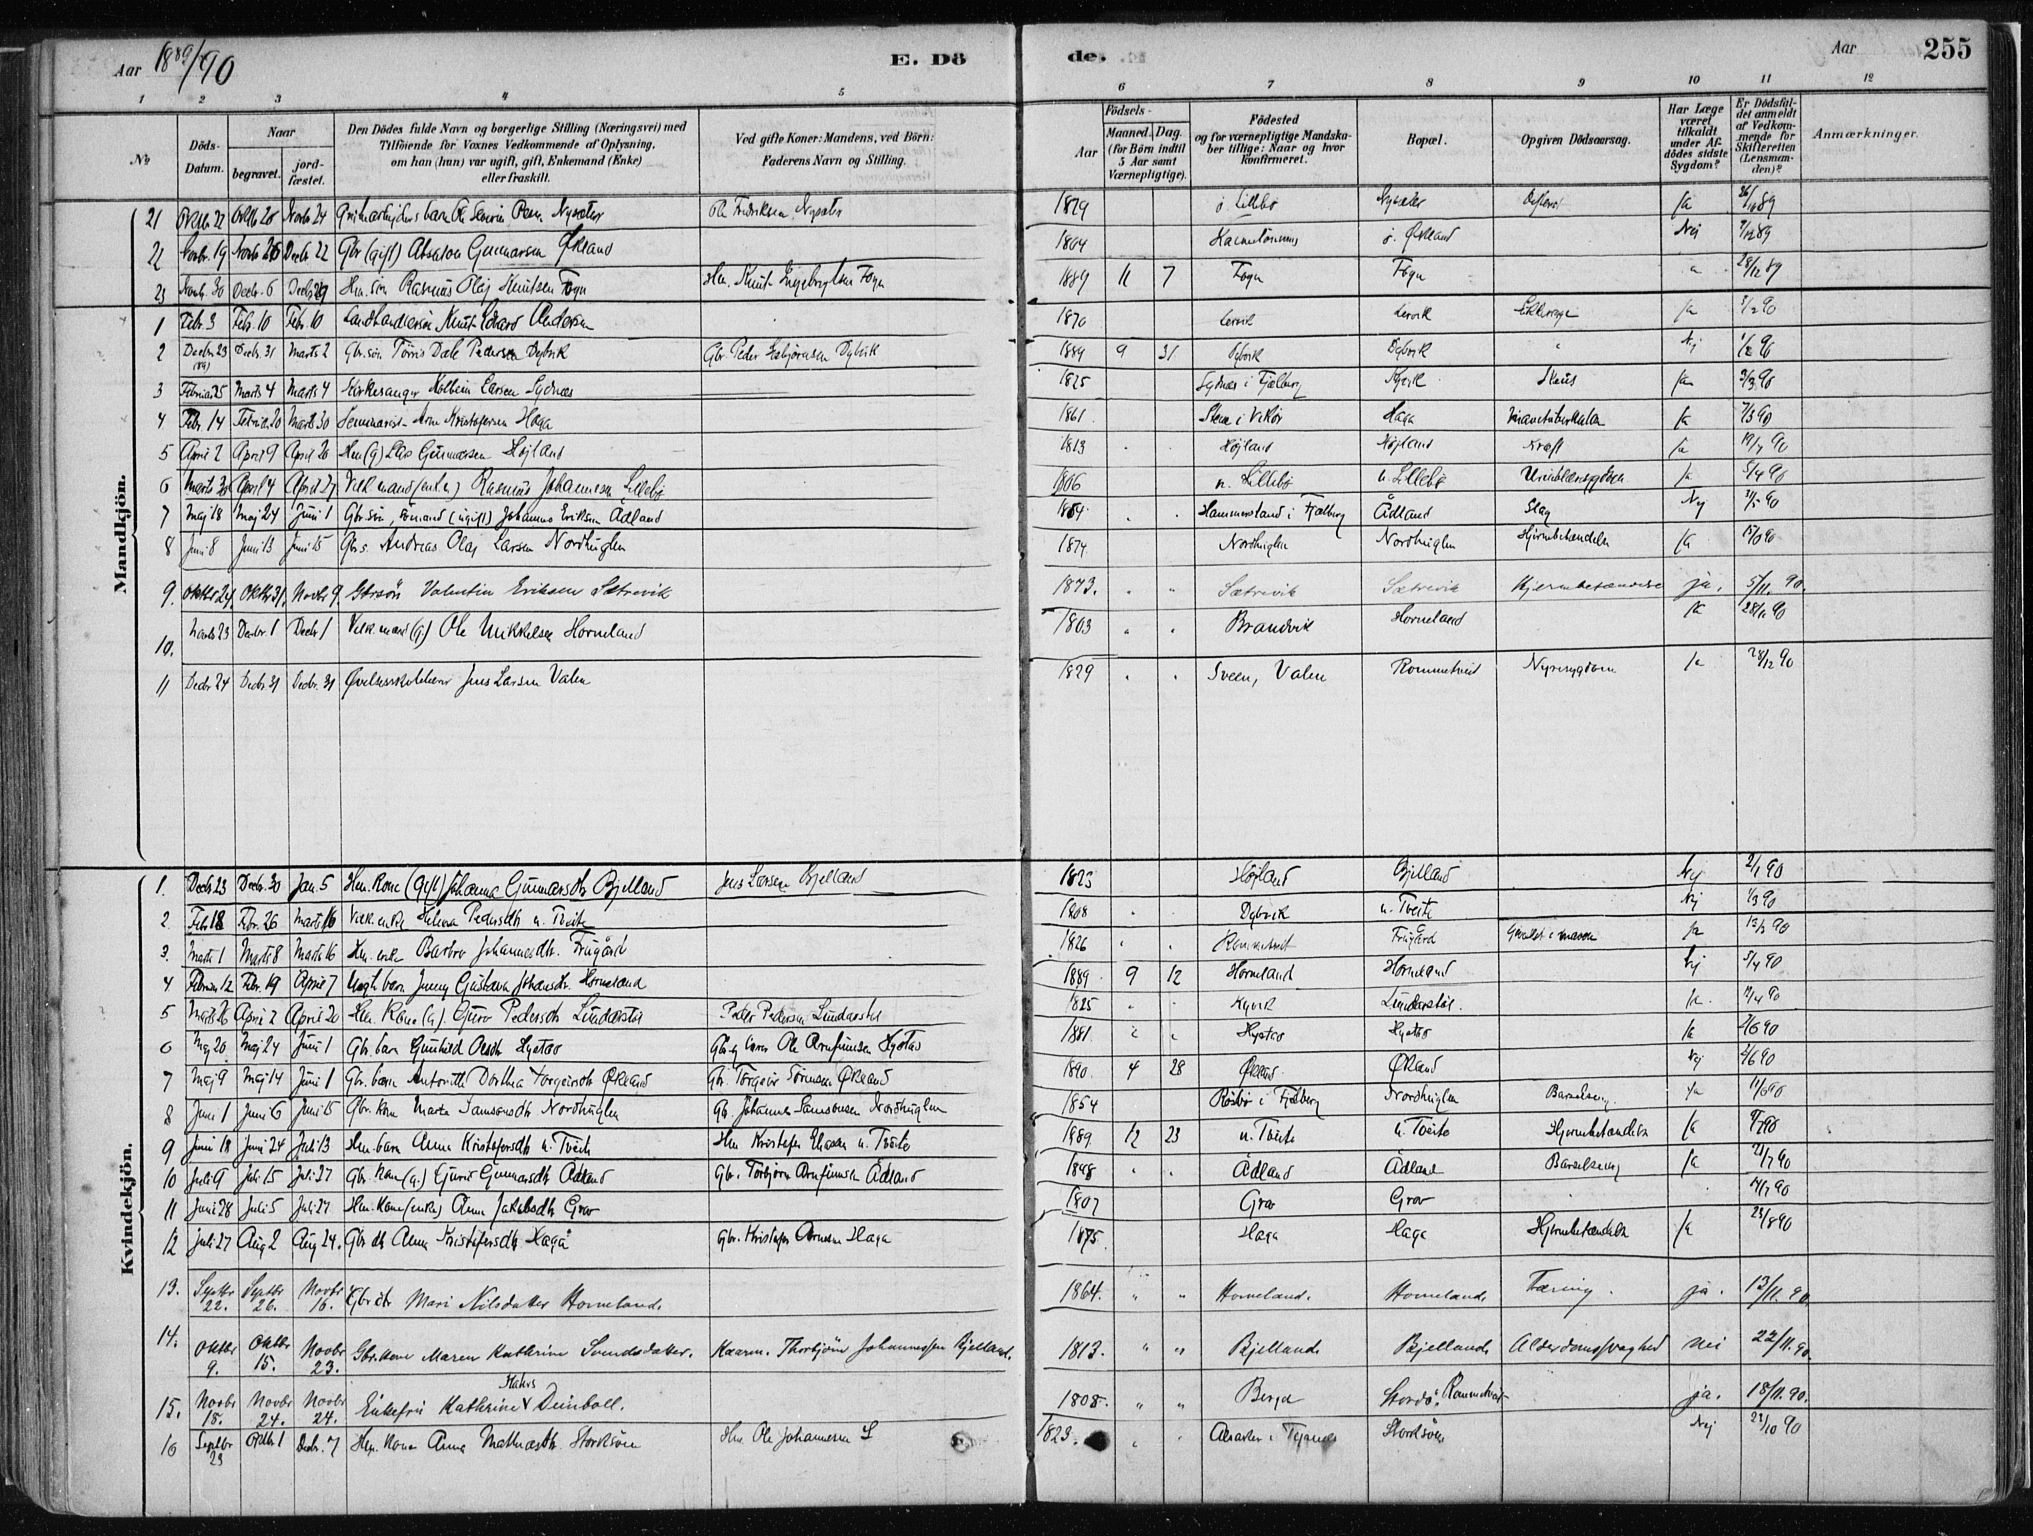 Aar 1889/90 E. Dö de. Aar 255
1 2 3 4 5 6 7 8 9 10 11 12
No Döds-Datum. Naar begravet. jord-fæstet. Den Dödes fulde Navn og borgerlige Stilling (Næringsvei) med Tilföiende for Voxnes Vedkommende af Oplysning, om han (hun) var ugift, gift, Enkemand (Enke) eller fraskilt. Ved gifte Koner: Mandens, ved Börn: Faderens Navn og Stilling. Aar Födsels- Maaned. Dag. (for Börn indtil 5 Aar samt Værnepligtige). Födested og for værnepligtige Mandska-ber tillige: Naar og hvor konfirmeret. Bopæl. Opgiven Dödsaarsag. Har Læge været tilkaldt under Af-dödes sidste Sygdom? Er Dödsfal-det anmeldt af Vedkom-mende for Skifteretten (Lensman-den)? Anmærkninger.
Mandkjön.
21 Oktb 22 Oktb 28 Novb 24 Nysæter Ole Fredriksen Nysæter 1829 ö. Lillebø Nysæter Ja 26/10 89
22 Novbr. 19 Novb 26 Decb 22 Gbr (gift) Absalon Gunnarsen Økland 1804 ö. Økland Nej 7/12 89
23 Novb. 30 Decbr. 6 Decbr 29 Hm. søn Rasmus Olaj Knutsen Fogn Hm. Knut Ingebrigtsen Fogn 1889 11 7 Fogn Fogn " 28/12 89
1 Febr. 3 Febr. 10 Febr. 10 Landhandlersøn Knut Edvard Andersen 1870 Lervik Lervik Ja /2 90
2 Decbr 23 (89) Decb. 31 Marts 2 Gbr. søn Tørris Dale Pedersen Dybvik Gbr. Peder Esbjørnsen Dybvik 1889 9 31 Dybvik Dybvik " Nej 1/2 90
3 Februar 25 Marts 4 Marts 4 Kirkesanger Kolbein Larsen Sydnæs 1825 Sydnæs i Fjelberg Kyvik Ja 3/3 90
4 Febr. 14 Februar 20 Marts 30 Seminarist Arne Kristofersen Haga 1861 Sten i Vikør Haga Mavetuberkulose Ja 7/3 90
5 April 2 April 9 April 20 Hm (g) Lars Gunnarsen Højland 1813 Højland Højland Kræft Ja 19/4 90
6 Marts 30 April 4 April 27 Vilk. mand (enkm) Rasmus Johannesen Lillebø 1806 n. Lillebø n. Lillebø Urinblæresygdom Ja 5/4 90
7 Maj 18 Maj 24 Juni 1 Gbr. søn, sømand (ugift) Johannes Eriksen Ådland 1864 Hammersland i Fjelberg Ådland Slag Nej 31/5 90
8 Juni 8 Juni 13 Juni 15 Gbr s. Andreas Olaj Larsen Nordhuglen 1874 Nordhuglen Nordhuglen Hjernebetændelse Ja 17/6 90
9. Oktbr 24. Oktbr 31. Novbr 9. Gbrsøn Valentin Eriksen Sætrevik 1873. Sætrevik Sætrevik Hjernebetændelse ja. 5/11. 90.
10. 23 Decbr. 1 Decb 1 Vilk. mand (g.) Ole Mikkelsen Horneland 1803 Brandvik Horneland Ja 28/11 90
11 Decbr 24 Decbr 31 Decbr. 31 Øvelseskolelærer Jens Larsen Valen 1829 Sveen, Valen Rommetveit Nyresygdom Ja 28/12 90
Kvindekjön.
1. Decb 23 Decbr. 30 Jan. 5 Hm. Kone (gift) Johanna Gunnarsdtr Bjelland Jens Larsen Bjelland 1823 Højland Bjelland Nej 2/1 90
2. Febr 18 Febr. 26 Marts 16 Vilk. enke Helena Pedersdtr n. Tveite 1808 Dybvik n. Tveite Nej 1/3 90
3. Marts 1 Marts 8 Marts 16 Hm. enke Barbro Johannesdtr Frugård 1826 Rommetveit Frugård Ja 12/3 90
4 Februar 12 Febr. 19 April 7 Uægte barn Jenny Gustava Johansdtr. Horneland 1889 9 12 Horneland Horneland Nej 5/4 90
5 Marts 26 April 2 April 20 Hm. Kone (g.) Guro Pedersdtr Lundarstøl Peder Pedersen Lundarstøl 1825 Kyvik Lundarstøl. Ja. /4 90
6 Maj 20 Maj 24 Juni 1 Gbr. barn Gunhild Olsdtr Hystad Ole Arnfinnsen Hystad 1881 Hystad Hystad Ja 2/6 90
7 Maj 9 Maj 14 Juni 1 Gbr. barn Antonette Dorthea Torgeirsdtr Økland Gbr. Torgeir Tørrisen Økland 1890 4 28 Økland Økland Nej 2/6 90
8 Juni 1 Juni 6 Juni 15 Gbr. kone Marta Samsonsdtr Nordhuglen Gb. Johannes Samsonsen Nordhuglen 1854 Røsbø i Fjelberg Nordhuglen Barselseng Ja 11/6 90
9 Juni 18 Juni 24 Juli 13 Hm. barn Anna Kristofersdtr n. Tveite Hm Kristofer Eliasen n. Tveite 1889 12 23 n. Tveite n. Tveite Hjernebetændelse Ja 8/7 90
10 Juli 9 Juli 15 Juli 27 Gbr. kone (g.) Guri Gunnarsdtr Ådland Gbr. Torbjørn Arnfinnsen Ådland 1848 Ådland Ådland Barselseng Ja 21/7 90
11 Juni 28 Juli 5 Juli 27 Hm. Kone (enke) Anna Jakobsdtr Grov 1807 Grov Grov /7 90
12 Juli 27 Aug 2 Aug 24. Gbr. dtr Anna Kristofersdtr Haga Gbr. Kristofer Arnesen Haga 1875. Haga Haga Hjernebetændelse Ja 23/8 90
13. Septbr 22. Septbr 26. Novbr 16. Gbr dtr Mari Nilsdatter Horneland. 1864. Horneland. Horneland. Tæring. ja. 13/11. 90.
14. Oktbr 9. Oktbr 15. Novbr 23. Gbr. kone Maren Kathrine Svendsdatter. Kaarm. Thorbjørn Johannessen Bjelland. 1813. Bjelland. Bjelland. Alderdomssvaghed nei 22/11. 90.
15. Novbr 18. Novbr 24. Novbr 24. Enkefru Kathrine Hahrs Deinboll. 1808. Bergen Stordö. Rommetveit ja. 18/11. 90.
16 Septbr 23 Oktbr 1 Decbr. 7 Hm. Kone Anna Mathiasdtr Storksøn Hm. Ole Johannesen S 1823. i Tysnes Storksøn Nej 23/10 90